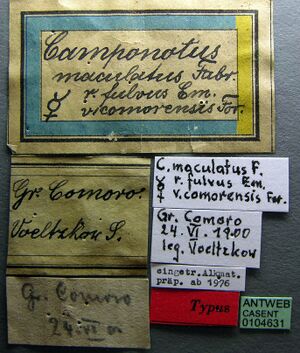 Camponotus
maculatus Fabr.
☿ r. fulvus Em.
v. comorensis For.
Gr. Comoro.
Voeltzkow S.
Gr. Comoro
24. VI 00
C. maculatus F.
☿ r. fulvus Em.
☿ v. comorensis For.
Gr. Comoro
24. VI. 1900
leg. Voeltzkow
eingetr. Alkmat.
präp. ab 1976
Typus
ANTWEB
CASENT
0104631